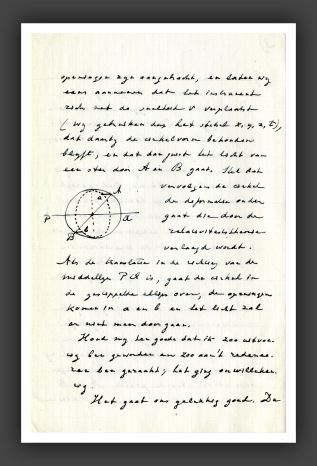 openingen zijn aangebracht, en laten wij
eens aannemen dat het instrument
zich met de snelheid v verplaatst
(wij gebruiken dus het stelsel x, y, z, t),
dat daarbij de cirkelvorm behouden
blijft, en dat dan juist het licht van
een ster door A en B gaat. Stel dat
vervolgens de cirkel
de deformatie onder
gaat die door de
relativiteitstheorie
verlangd wordt.
A
a
P
Q
B
b
Als de translatie in de richting van de
middellijn PQ is, gaat de cirkel in
de gestippelde ellips over, de openingen
komen in a en b en het licht zal
er niet meer door gaan.
Houd mij ten goede dat ik zoo uitvoe-
rig ben geworden en zoo aan 't redenee-
ren ben geraakt; het ging onwillekeu-
rig.
Het gaat ons gelukkig goed. De